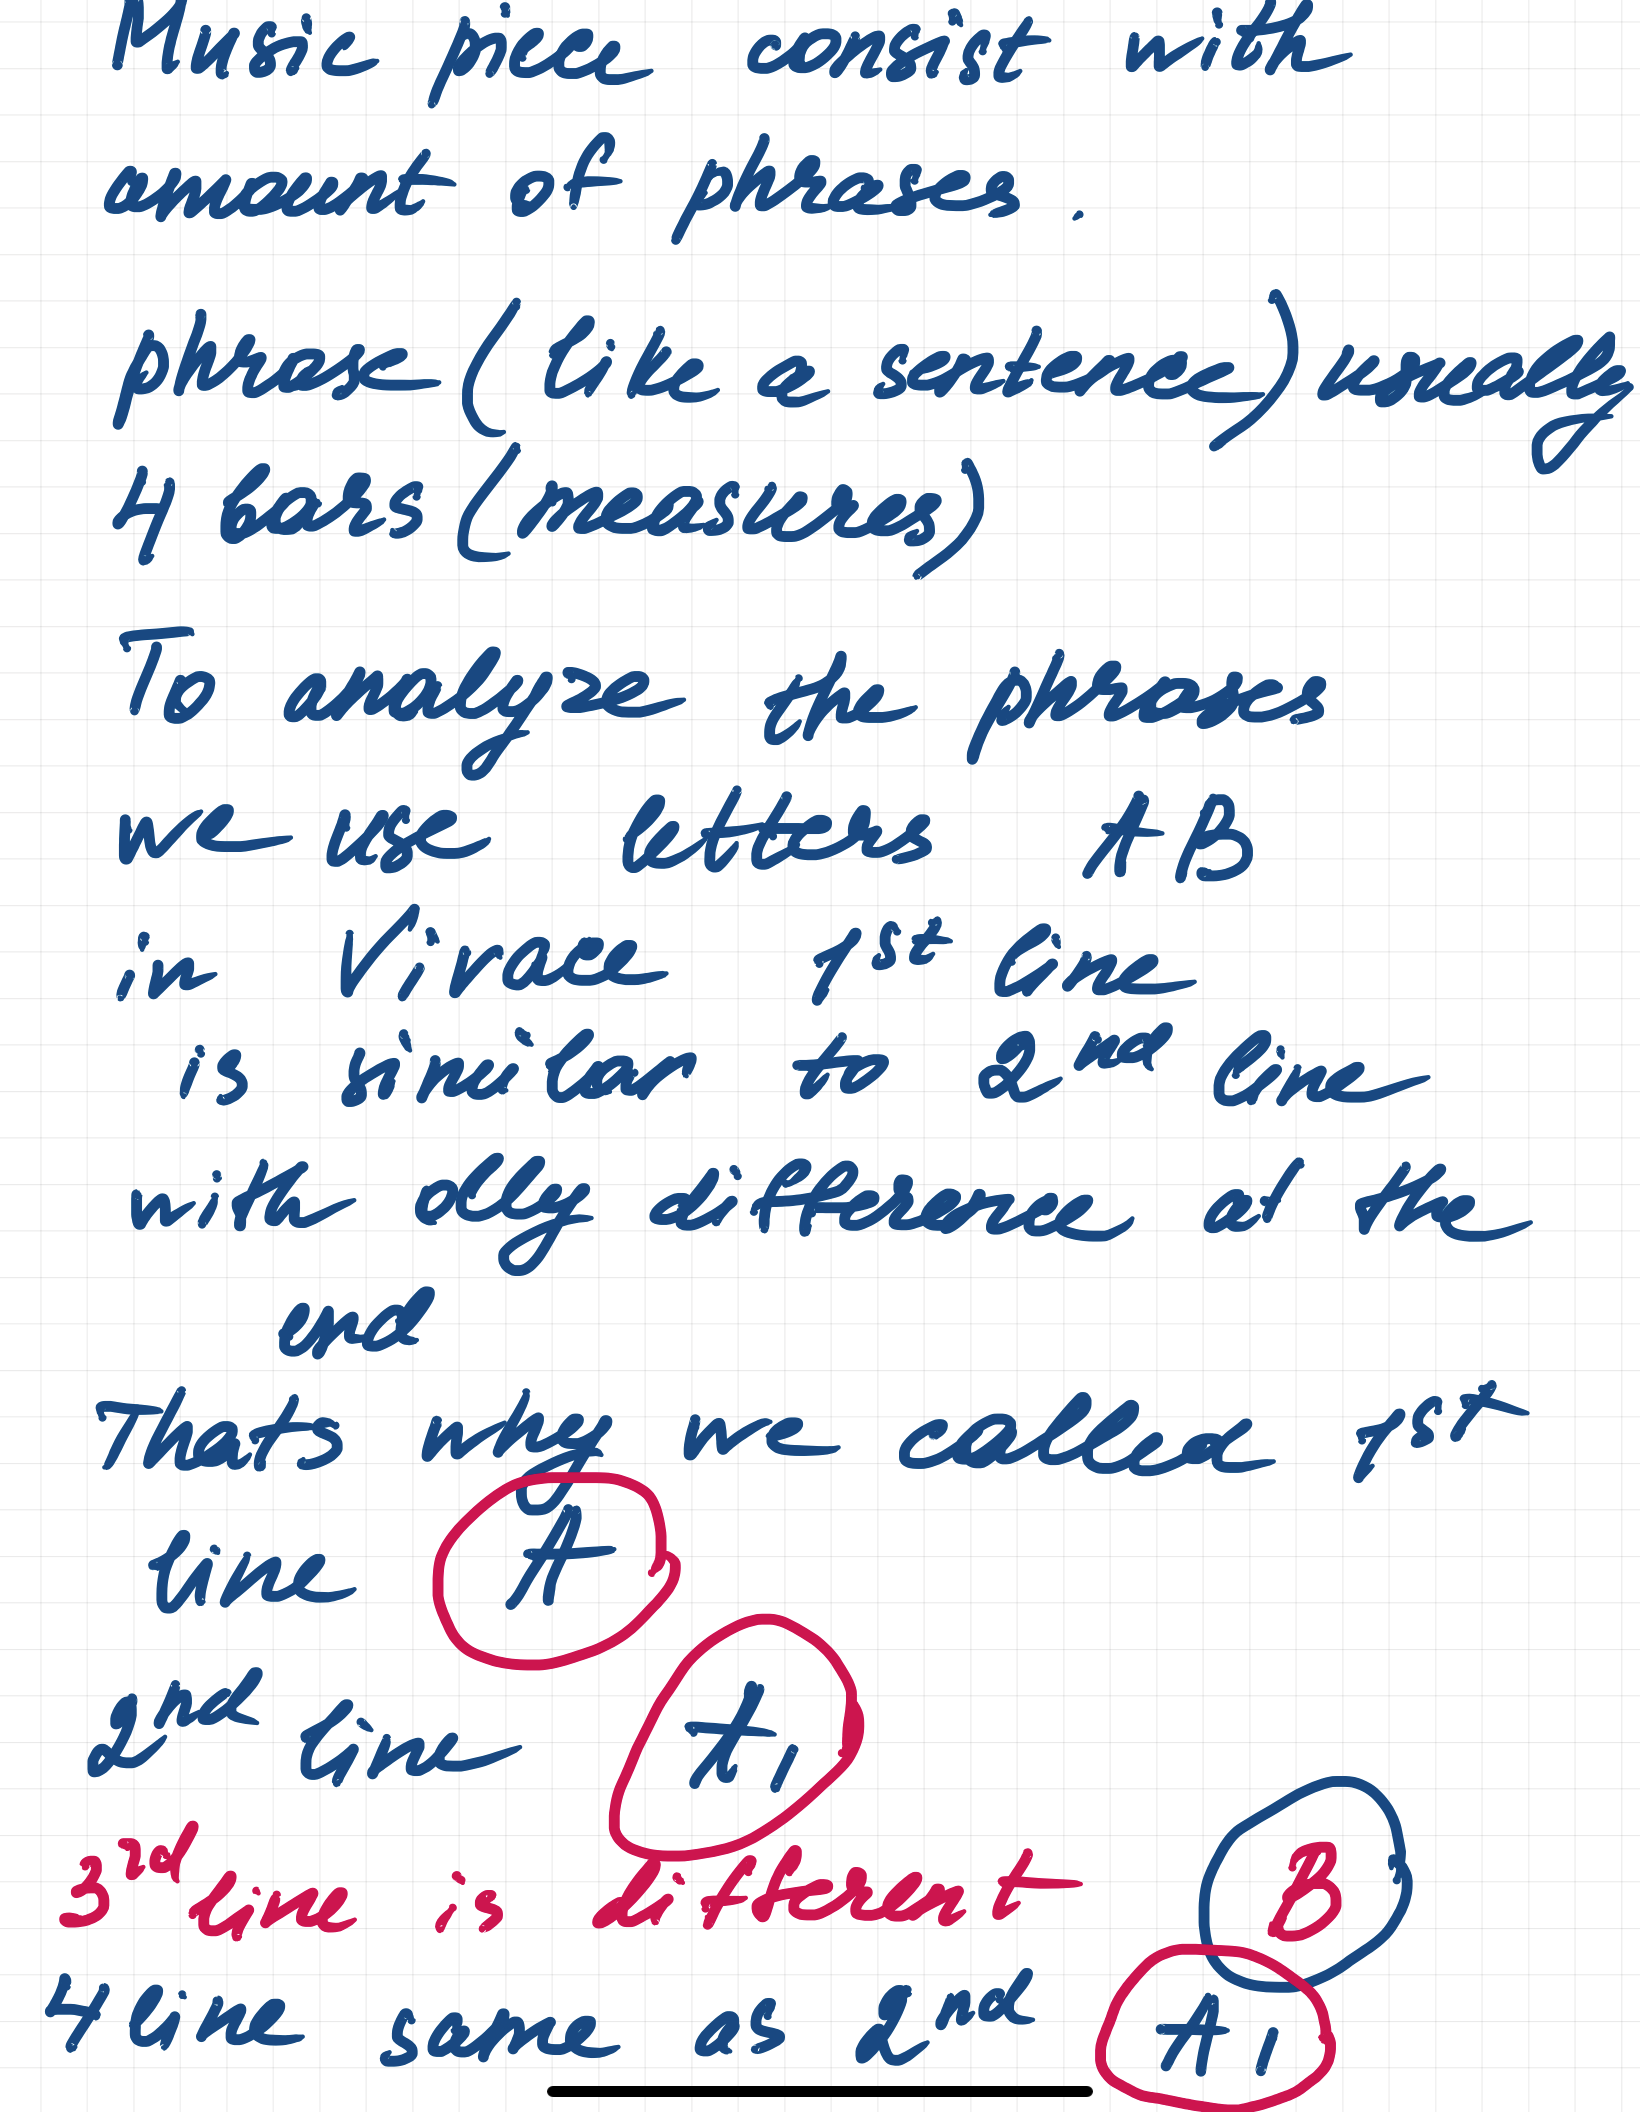 Music piece consist with
amount of phrases.
phrase (like a sentence) usually
4 bars (measures)
To analyze the phrases
we use letters AB
in Vivace 1st line
is similar to 2nd line
with olly difference at the
end
Thats why we called 1st
line A
2nd line A1
3rd line is different B
4 line same as 2nd A1